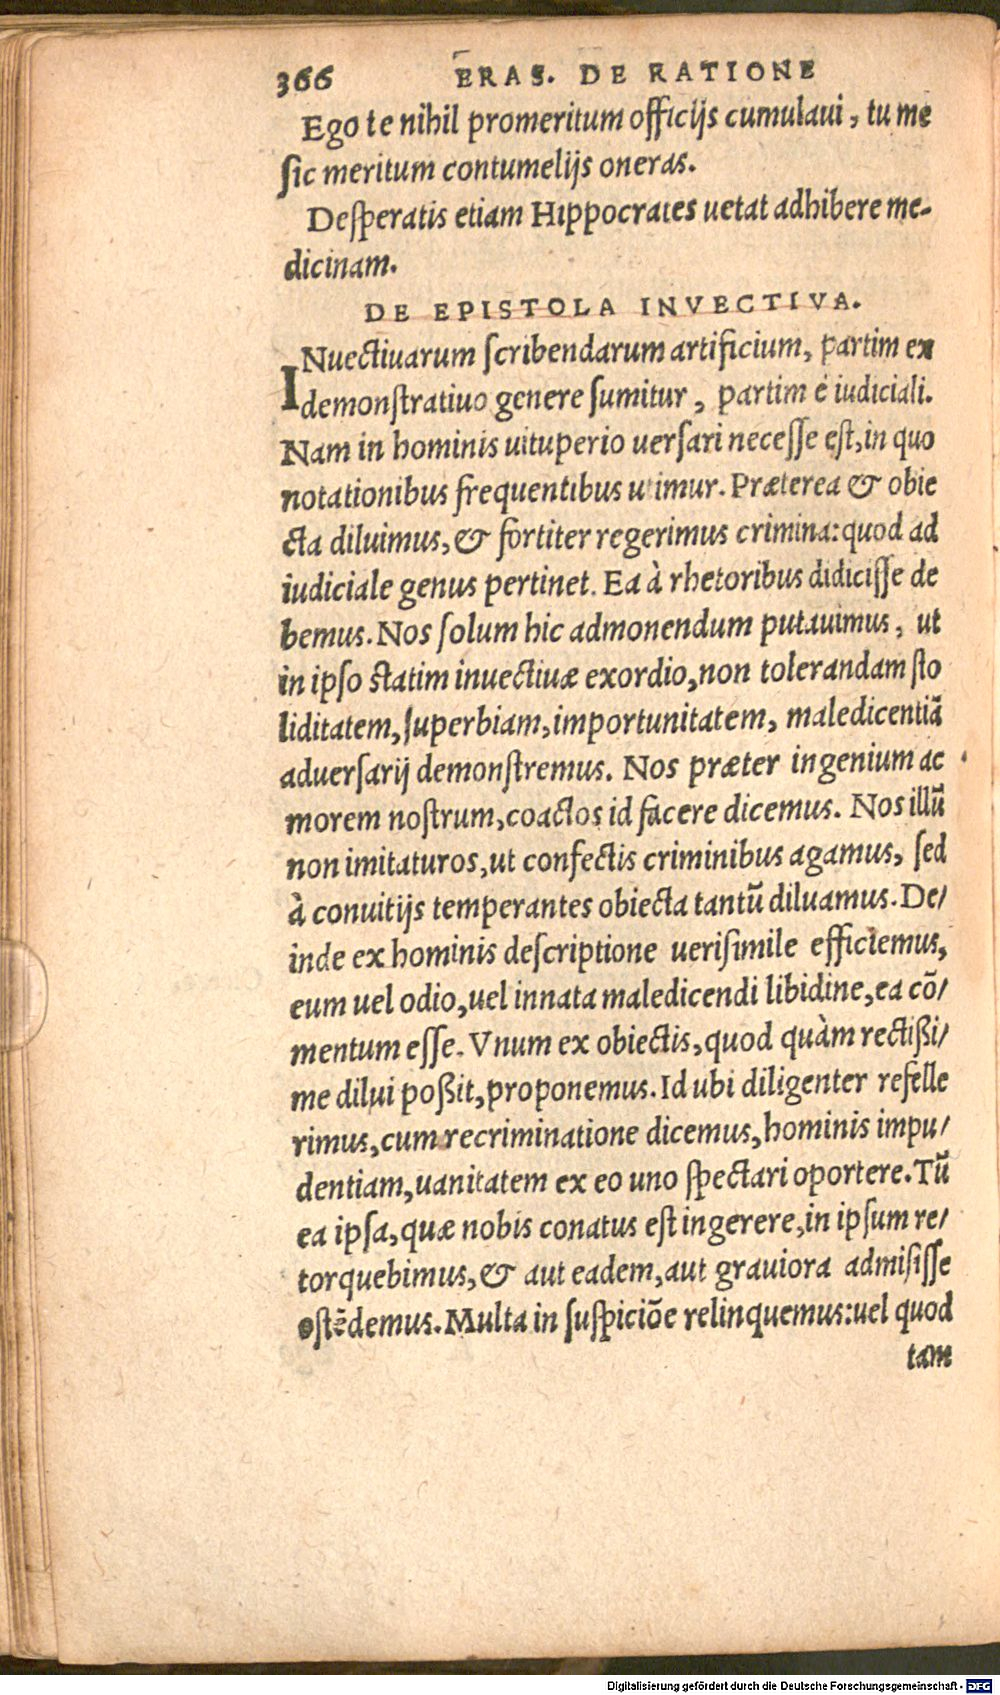 366 ERAS. DE RATIONE
Ego te nihil promeritum officijs cumulaui, tu me
sic meritum contumelijs oneras.
Desperatis etiam Hippocrates uetat adhibere me-
dicinam.
DE EPISTOLA INVECTIVA.
INuectiuarum scribendarum artificium, partim ex
demonstratiuo genere sumitur, partim è iudiciali.
Nam in hominis uituperio uersari necesse est, in quo
notationibus frequentibus utimur. Præterea & obie
cta diluimus, & fortiter regerimus crimina: quod ad
iudiciale genus pertinet. Ea à rhetoribus didicisse de
bemus. Nos solum hic admonendum putauimus, ut
in ipso statim inuectiuæ exordio, non tolerandam sto
liditatem, superbiam, importunitatem, maledicentiã
aduersarij demonstremus. Nos præter ingenium ac
morem nostrum, coactos id facere dicemus. Nos illũ
non imitaturos, ut confectis criminibus agamus, sed
à conuitijs temperantes obiecta tantũ diluamus. De/
inde ex hominis descriptione uerisimile efficiemus,
eum uel odio, uel innata maledicendi libidine, ea cõ/
mentum esse. Vnum ex obiectis, quod quàm rectißi/
me dilui poßit, proponemus. Id ubi diligenter refelle
rimus, cum recriminatione dicemus, hominis impu/
dentiam, uanitatem ex eo uno spectari oportere. Tũ
ea ipsa, quæ nobis conatus est ingerere, in ipsum re/
torquebimus, & aut eadem, aut grauiora admisisse
ostẽdemus. Multa in suspiciõe relinquemus: uel quod
tam
Digitalisierung gefördert durch die Deutsche Forschungsgemeinschaft - DFG